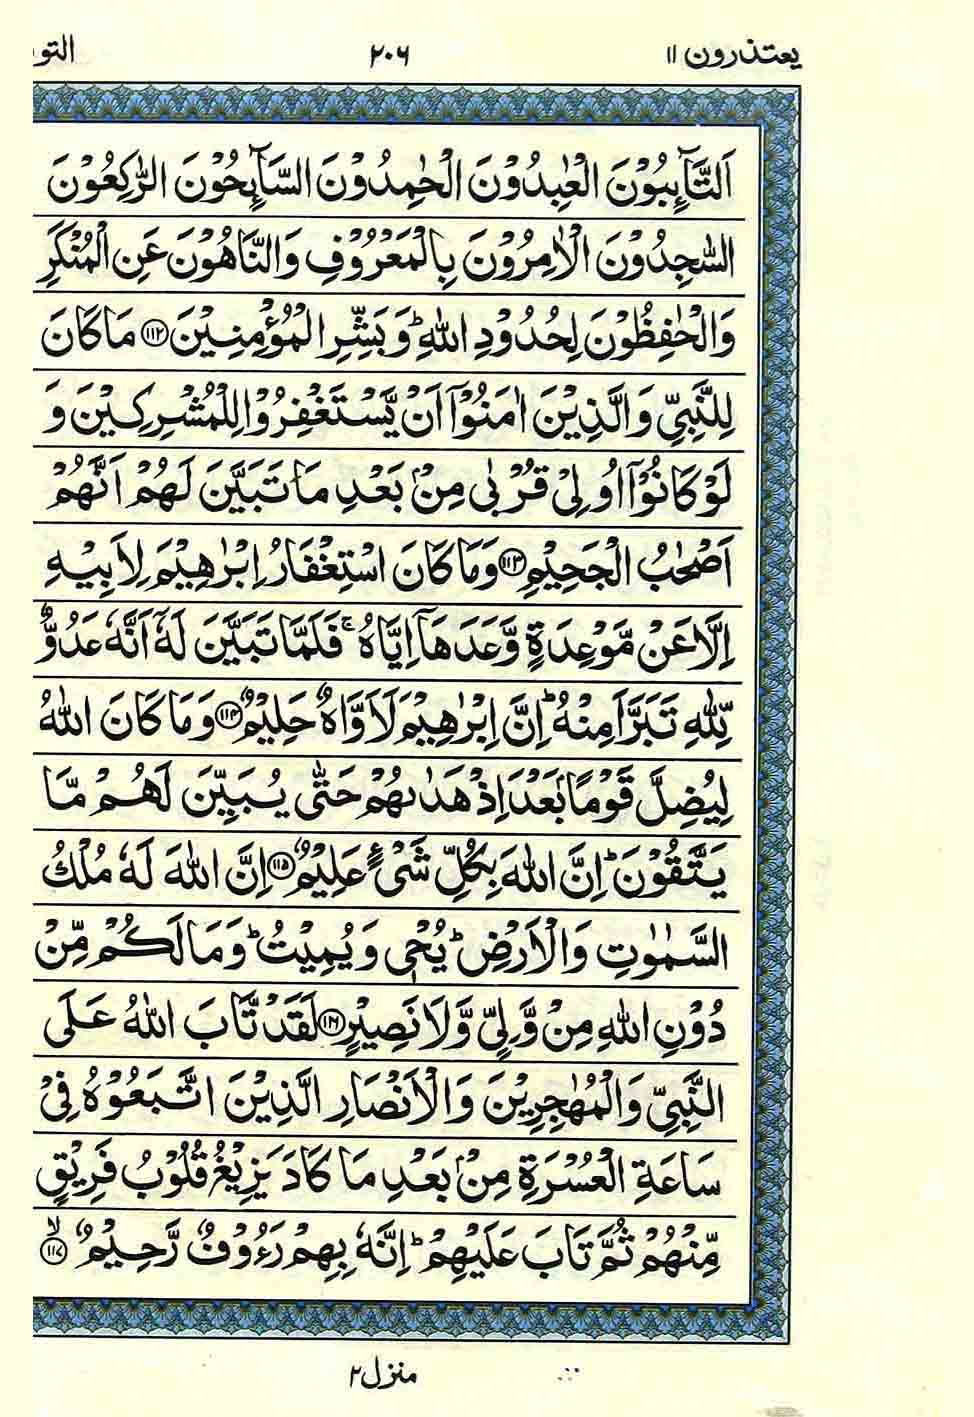 يعتذرون ١١
٢٠٦
التو
اَلتَّآئِبُوْنَ الْعٰبِدُوْنَ الْحٰمِدُوْنَ السَّآئِحُوْنَ الرّٰكِعُوْنَ
السّٰجِدُوْنَ الْاٰمِرُوْنَ بِالْمَعْرُوْفِ وَالنَّاهُوْنَ عَنِ الْمُنْكَرِ
وَالْحٰفِظُوْنَ لِحُدُوْدِ اللّٰهِ ؕ وَبَشِّرِ الْمُؤْمِنِيْنَ ۝۱۱۲ مَا كَانَ
لِلنَّبِىِّ وَالَّذِيْنَ اٰمَنُوْۤا اَنْ يَّسْتَغْفِرُوْا لِلْمُشْرِكِيْنَ وَ
لَوْ كَانُوْۤا اُولِىْ قُرْبٰى مِنْۢ بَعْدِ مَا تَبَيَّنَ لَهُمْ اَنَّهُمْ
اَصْحٰبُ الْجَحِيْمِ ۝۱۱۳ وَمَا كَانَ اسْتِغْفَارُ اِبْرٰهِيْمَ لِاَبِيْهِ
اِلَّا عَنْ مَّوْعِدَةٍ وَّعَدَهَاۤ اِيَّاهُ ۚ فَلَمَّا تَبَيَّنَ لَهٗۤ اَنَّهٗ عَدُوٌّ
لِّلّٰهِ تَبَرَّاَ مِنْهُ ؕ اِنَّ اِبْرٰهِيْمَ لَاَوَّاهٌ حَلِيْمٌ ۝۱۱۴ وَمَا كَانَ اللّٰهُ
لِيُضِلَّ قَوْمًۢا بَعْدَ اِذْ هَدٰٮهُمْ حَتّٰى يُبَيِّنَ لَهُمْ مَّا
يَتَّقُوْنَ ؕ اِنَّ اللّٰهَ بِكُلِّ شَىْءٍ عَلِيْمٌ ۝۱۱۵ اِنَّ اللّٰهَ لَهٗ مُلْكُ
السَّمٰوٰتِ وَالْاَرْضِ ؕ يُحْىٖ وَيُمِيْتُ ؕ وَمَا لَكُمْ مِّنْ
دُوْنِ اللّٰهِ مِنْ وَّلِىٍّ وَّلَا نَصِيْرٍ ۝۱۱۶ لَقَدْ تَّابَ اللّٰهُ عَلَى
النَّبِىِّ وَالْمُهٰجِرِيْنَ وَالْاَنْصَارِ الَّذِيْنَ اتَّبَعُوْهُ فِىْ
سَاعَةِ الْعُسْرَةِ مِنْۢ بَعْدِ مَا كَادَ يَزِيْغُ قُلُوْبُ فَرِيْقٍ
مِّنْهُمْ ثُمَّ تَابَ عَلَيْهِمْ ؕ اِنَّهٗ بِهِمْ رَءُوْفٌ رَّحِيْمٌ ۙ‏۝۱۱۷
منزل ٢